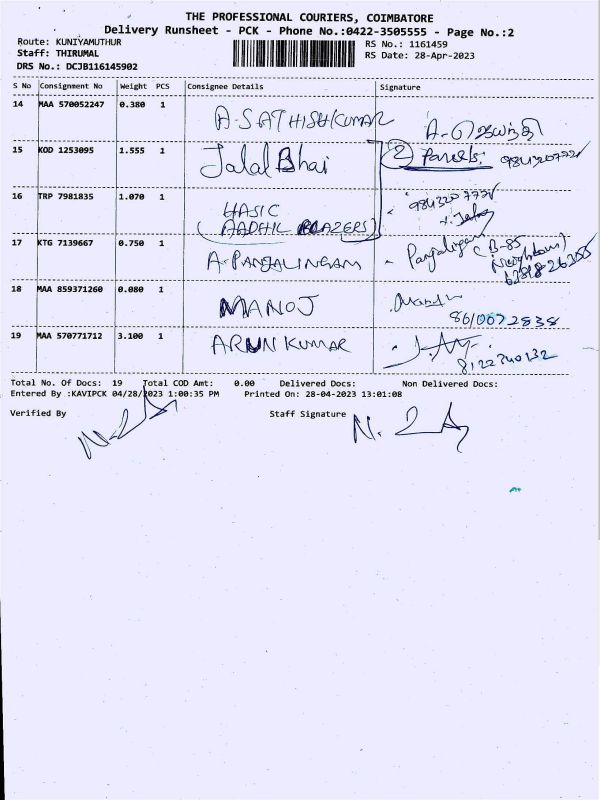 THE PROFESSIONAL COURIERS, COIMBATORE
Delivery Runsheet - PCK - Phone No.:0422-3505555 - Page No.:2
Route: KUNIYAMUTHUR
RS No.: 1161459
Staff: THIRUMAL
RS Date: 28-Apr-2023
DRS No.: DCJB116145902
S No Consignment No Weight PCS Consignee Details Signature
14 MAA 570052247 0.380 1 A-SATHISHKUMAR A-ஜெயந்தி
15 KOD 1253095 1.555 1 Jalal Bhai 2 Parcels.
16 TRP 7981835 1.070 1 HASIC
(AADHIC BLAZERS)
17 KTG 7139667 0.750 1 A-PANJALINGAM - Panjalingam (B-85
(Neighbour)
18 MAA 859371260 0.080 1 MANOJ
8610072838
19 MAA 570771712 3.100 1 ARUN KUMAR
8122740132
Total No. Of Docs: 19 Total COD Amt: 0.00 Delivered Docs: Non Delivered Docs:
Entered By :KAVIPCK 04/28/2023 1:00:35 PM Printed On: 28-04-2023 13:01:08
Verified By Staff Signature